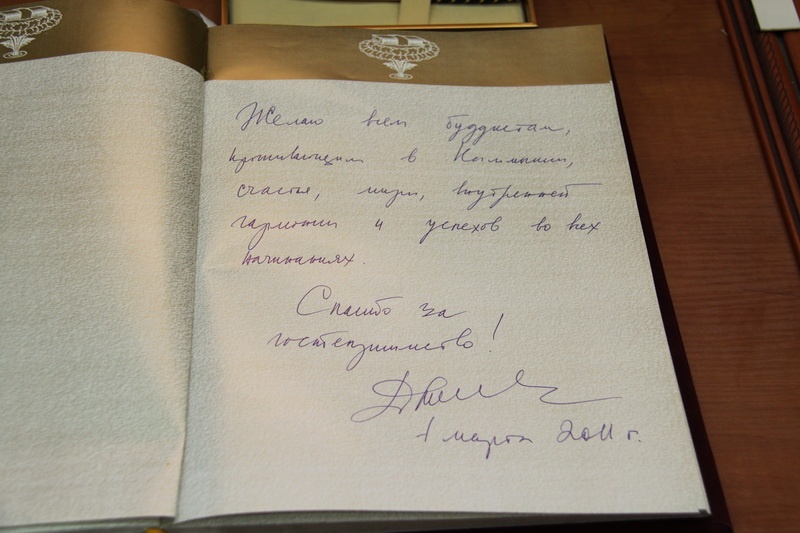 Желаю всем буддистам,
проживающим в Калмыкии,
счастья, мира, внутренней
гармонии и успехов во всех
начинаниях.
Спасибо за
гостеприимство!
1 марта 2011 г.